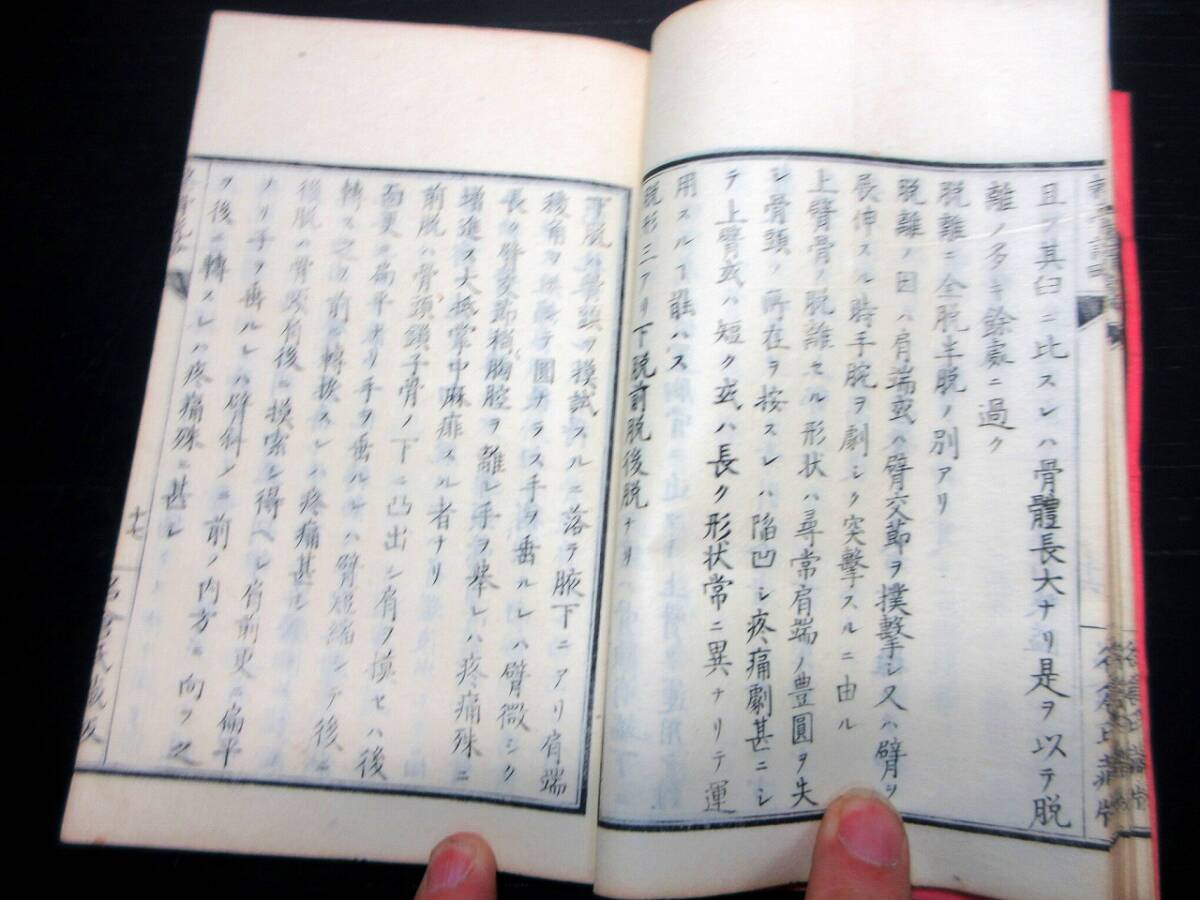 且ツ其臼ニ比スレハ骨體長大ナリ是ヲ以テ脱
離ノ多キ餘處ニ過ク
脱離ニ全脱半脱ノ別アリ
脱離ノ因ハ肩端或ハ臂交節ヲ撲撃シ又ハ臂ヲ
展伸スル時手腕ヲ劇シク突撃スルニ由ル
上臂骨ノ脱離セル形状ハ尋常肩端ノ豊圓ヲ失
シ骨頭ノ所在ヲ按スレハ陥凹シ疼痛劇甚ニシ
テ上臂或ハ短ク或ハ長ク形状常ニ異ナリテ運
用スルヿ能ハス
脱形三アリ下脱前脱後脱ナリ
下脱ハ骨頭ヲ摸試スルニ落テ腋下ニアリ肩端
稜角ヲ シテ圓ナラス手ヲ垂ルレハ臂微シク
長ク臂交節稍胸腔ヲ離レ手ヲ挙レハ疼痛殊ニ
増進ス大抵掌中麻痺スル者ナリ
前脱ハ骨頭鎖子骨ノ下ニ凸出シ肩ヲ摸セハ後
面更ニ扁平ナリ手ヲ垂ルレハ臂短縮シテ後ニ
轉ス之ヲ前ニ轉挨スレハ疼痛甚シ
後脱ハ骨頭肩後ニ摸索シ得ヘシ肩前更ニ扁平
ナリ手ヲ垂ルレハ臂斜シニ前ノ内方ニ向フ之
ヲ後ニ轉スレハ疼痛殊ニ甚シ
十七